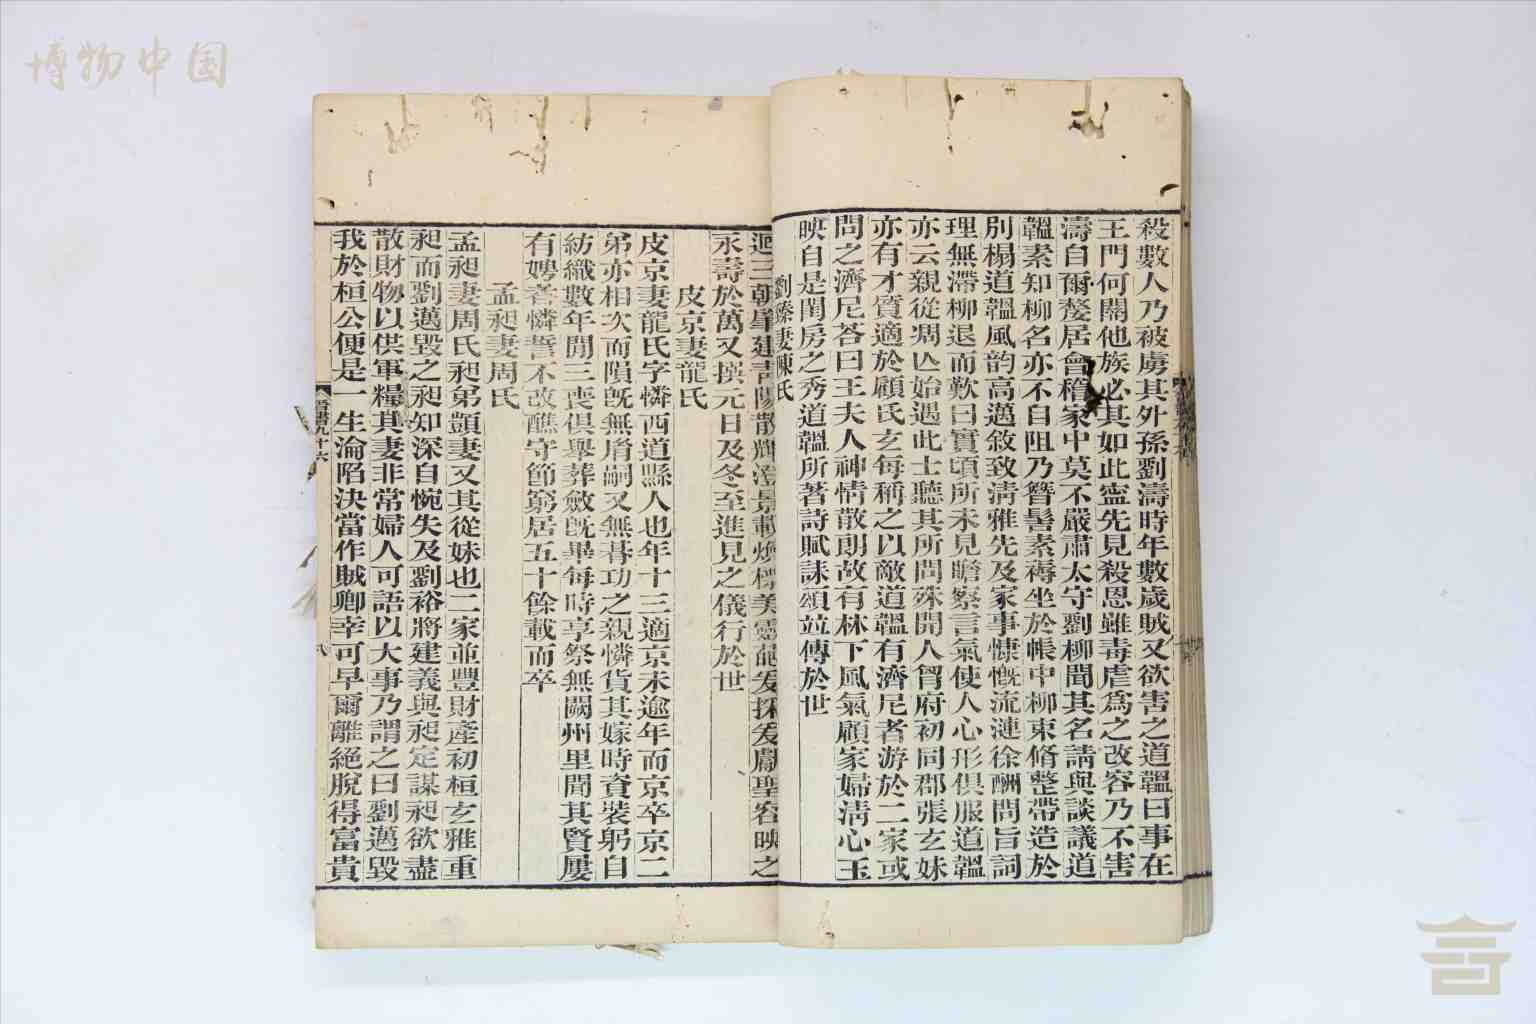 博物中国
殺數人乃被虜其外孫劉濤時年數歲賊又欲害之道韞曰事在
王門何關他族必其如此寍先見殺恩雖毒虐爲之改容乃不害
濤自爾嫠居會稽家中莫不嚴肅太守劉柳聞其名請與談議道
韞素知柳名亦不自阻乃簪髻素褥坐於帳中柳束脩整帶造於
別榻道韞風韵高邁敘致淸雅先及家事慷慨流漣徐酬問旨詞
理無滯柳退而歎曰實頃所未見瞻察言氣使人心形俱服道韞
亦云親從凋亾始遇此士聽其所問殊開人胷府初同郡張玄妹
亦有才質適於顧氏玄每稱之以敵道韞有濟尼者游於二家或
問之濟尼荅曰王夫人神情散朗故有林下風氣顧家婦淸心玉
映自是閨房之秀道韞所著詩賦誄頌竝傳於世
劉臻妻陳氏
迴三朝肇建靑陽散輝澄景載煥標美靈葩爰採爰獻聖容映之
永壽於萬又撰元日及冬至進見之儀行於世
皮京妻龍氏
皮京妻龍氏字憐西道縣人也年十三適京未逾年而京卒京二
弟亦相次而隕旣無脣嗣又無朞功之親憐貨其嫁時資裝躬自
紡織數年閒三喪俱舉葬斂旣畢每時享祭無闕州里聞其賢屢
有娉者憐誓不改醮守節窮居五十餘載而卒
孟昶妻周氏
孟昶妻周氏昶弟顗妻又其從妹也二家並豐財產初桓玄雅重
昶而劉邁毀之昶知深自惋失及劉裕將建義與昶定謀昶欲盡
散財物以供軍糧其妻非常婦人可語以大事乃謂之曰劉邁毀
我於桓公便是一生淪陷決當作賊卿幸可早爾離絕脫得富貴
晉書九十六
八